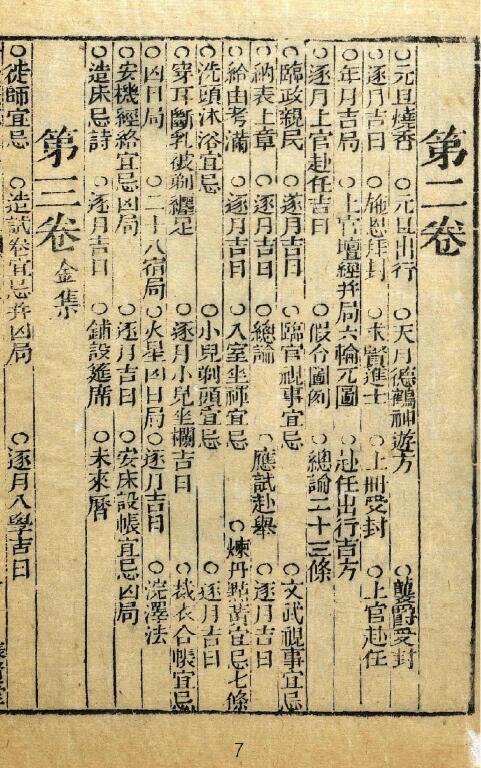 第二卷
○元旦燒香 ○元旦出行 ○天月德鶴神遊方 ○襲爵受封
○逐月吉日 ○施恩拜封 ○求賢進士 ○上冊受封 ○上官赴任
○年月吉局 ○上官壇經并局六輪元圖 ○赴任出行吉方
○逐月上官赴任吉日 ○假令圖例 ○總論二十三條
○臨政親民 ○逐月吉日 ○臨官視事宜忌 ○文武視事宜忌
○納表上章 ○逐月吉日 ○總論 ○應試赴舉 ○逐月吉日
○給由考滿 ○逐月吉日 ○入室坐禪宜忌 ○煉丹點黃宜忌七條
○洗頭沐浴宜忌 ○小兒剃頭宜忌 ○逐月吉日
○穿耳斷乳彼剃纏足 ○逐月小兒坐欄吉日 ○裁衣合帳宜忌
○凶日局 ○二十八宿局 ○火星凶日局 ○逐月吉日 ○浣澤法
○安機經絡宜忌凶局 ○逐月吉日 ○安床設帳宜忌凶局
○造床忌詩 ○逐月吉日 ○鋪設筵席 ○未來曆
第三卷 金集
○徒師宜忌 ○造試卷宜忌并凶局 ○逐月入學吉日
7